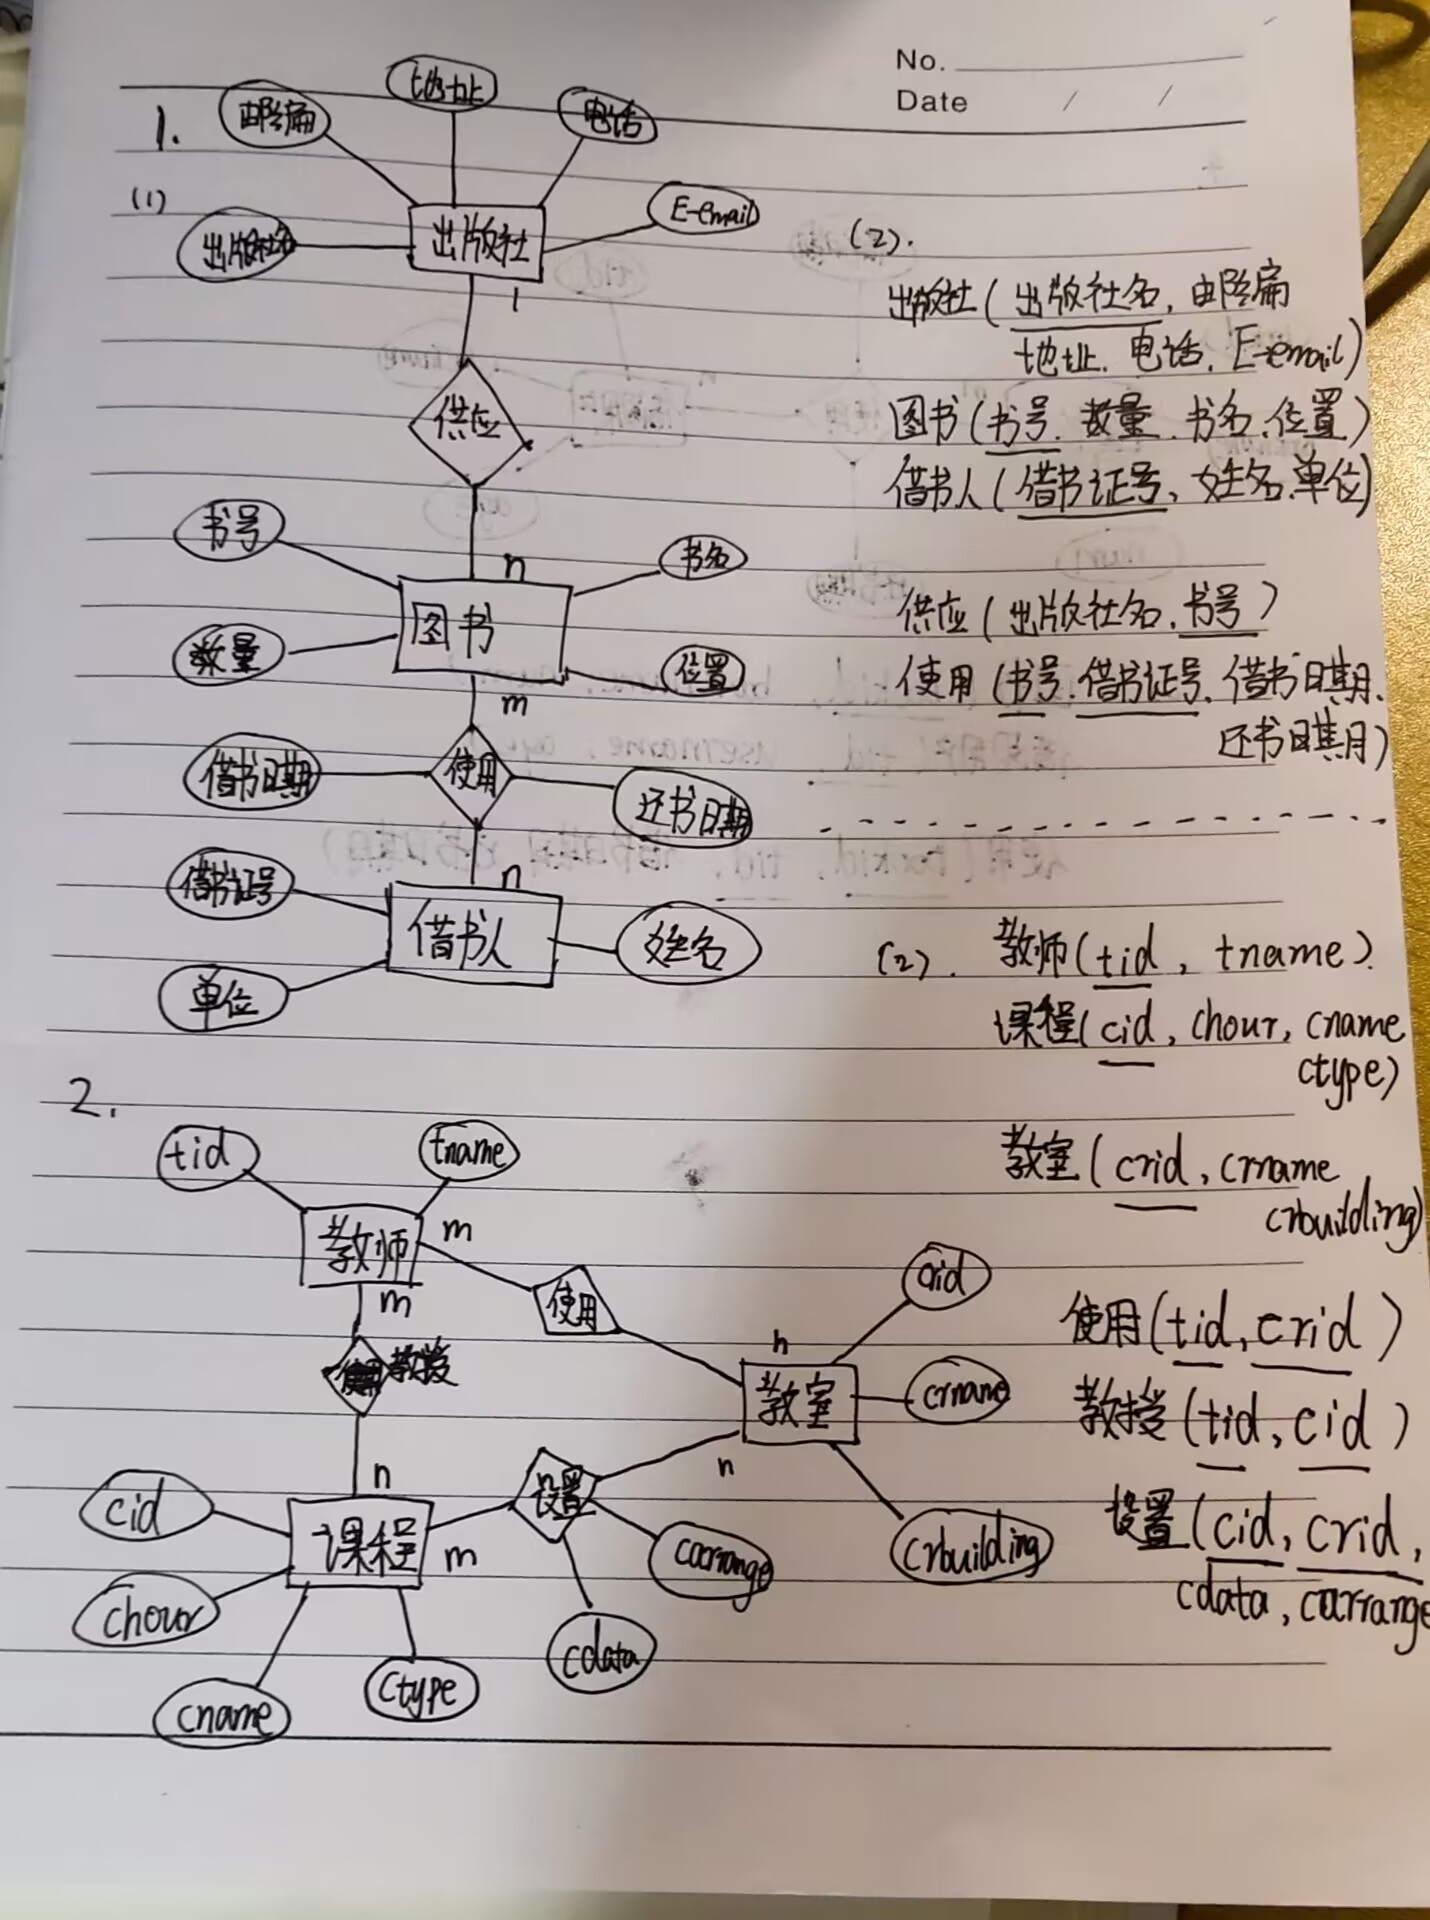 No.
Date / /
1.
邮编
地址
电话
(1)
出版社名
出版社
E-email
1
供应
n
书号
书名
图书
数量
位置
m
借书日期
使用
还书日期
n
借书证号
借书人
姓名
单位
(2).
出版社(出版社名,邮编
地址.电话.E-email)
图书(书号.数量.书名.位置)
借书人(借书证号,姓名.单位)
供应(出版社名.书号)
使用(书号.借书证号.借书日期.
还书日期)
2.
tid
tname
教师
m
m
使用
教授
n
crid
n
教室
crname
n
crbuilding
cid
课程
m
设置
carrange
chour
cdata
cname
ctype
(2). 教师(tid, tname).
课程(cid, chour, cname
ctype)
教室(crid, crname
crbuilding)
使用(tid, crid)
教授(tid, cid)
设置(cid, crid,
cdata, carrange